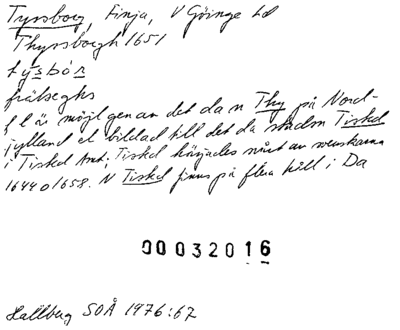 Tyssborg, Finja, V Göinge hd
Thyssborgh 1651
týsbór
frälseghs
F l är möjl gen av det da n Thy på Nord-
jylland el bildad till det da stadsn Tisted
i Tisted Amt; Tisted härjades svårt av svenskarna
1644 o 1658. N Tisted finns på flera håll i Da
00032016
Hallberg SOÅ 1976:67